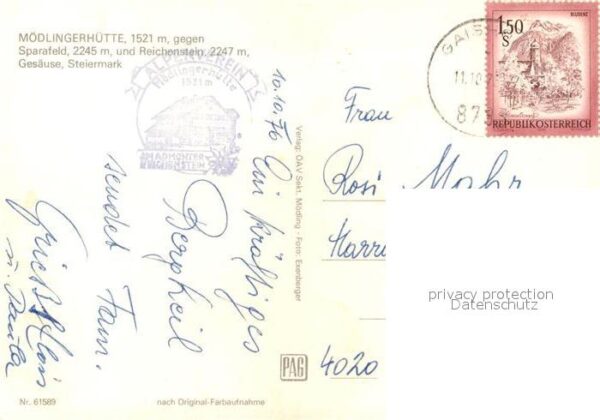 MÖDLINGERHÜTTE, 1521 m, gegen
Sparafeld, 2245 m, und Reichenstein, 2247 m,
Gesäuse, Steiermark
ALPENVEREIN
Mödlingerhütte
1521 m
AM ADMONTER
REICHENSTEIN
10.10.76
Ein kräftiges
Bergheil
sendet Fam.
Verlag: ÖAV Sekt. Mödling - Foto: Exenberger
PAG
Nr. 61589
nach Original-Farbaufnahme
1.50
S
BLUDENZ
REPUBLIK ÖSTERREICH
GAIS
11.10.7
87
Frau
Rosi Mohr
4020
privacy protection
Datenschutz